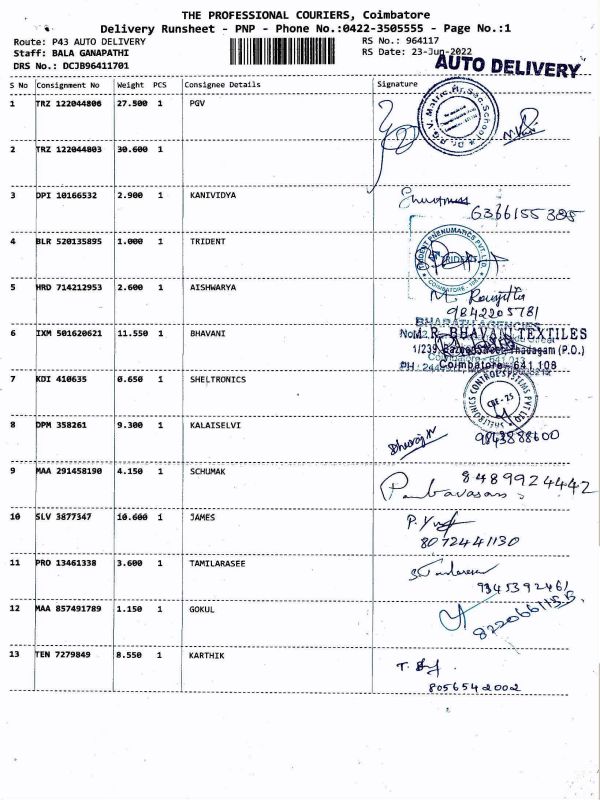 THE PROFESSIONAL COURIERS, Coimbatore
Delivery Runsheet - PNP - Phone No.:0422-3505555 - Page No.:1
Route: P43 AUTO DELIVERY RS No.: 964117
Staff: BALA GANAPATHI RS Date: 23-Jun-2022
DRS No.: DCJB96411701 AUTO DELIVERY
S No Consignment No Weight PCS Consignee Details Signature
1 TRZ 122044806 27.500 1 PGV
2 TRZ 122044803 30.600 1
3 DPI 10166532 2.900 1 KANIVIDYA
6366155385
4 BLR 520135895 1.000 1 TRIDENT
TRIDENT PNEUMATICS PVT. LTD.
TRIDENT
COIMBATORE
5 HRD 714212953 2.600 1 AISHWARYA
9842205781
BHARATH AGENCIES
6 IXM 501620621 11.550 1 BHAVANI
M.R. BHAVANI TEXTILES
1/239, Thadagam (P.O.)
Coimbatore - 641 108
7 KDI 410635 0.650 1 SHELTRONICS
SHELTRONICS CONTROL SYSTEMS PVT LTD
CBE-25
8 DPM 358261 9.300 1 KALAISELVI
9843888600
9 MAA 291458190 4.150 1 SCHUMAK
8489924442
10 SLV 3877347 10.600 1 JAMES
8072441130
11 PRO 13461338 3.600 1 TAMILARASEE
9345392461
12 MAA 857491789 1.150 1 GOKUL
13 TEN 7279849 8.550 1 KARTHIK
8056542002